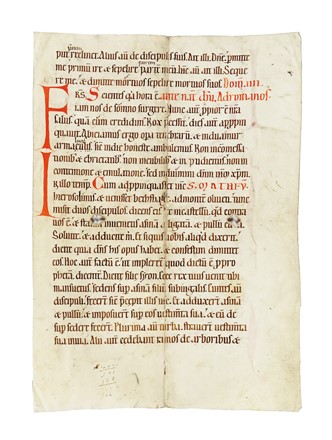 put reclinet. Alius aut de discipulis suis. Ait illi. Dne pmitte
me primu ire & sepelire patre meu. ihc aut ait illi. Seque
re me. & dimitte mortuos sepelire mortuos suos.
FRS. Scientes qa hora
iam nos de somno surgere. Nunc aut ppior e nra
salus. qua cum credidim.
quauit. Abiciamus ergo opa tenebraru. & induamur
arma lucis. sic in die honeste ambulemus. Non in comessa
nonib & ebrietatib. non in cubilib & in pudicitiis. non in
contentione & emulatione. sed induimini dnm
Cum adppinquasset ihc
hierosolimis & uenisset bethfage. ad monte oliueti. tunc
misit duos discipulos. dicens eis. Ite in castellu. qd contra
uos e. & statim inuenietis asina alligata. & pullu cu ea.
Soluite. & adducite m. Et siquis uobis aliqd dixerit.
dicite quia dns his opus habet. & confestim dimittet
eos. Hoc aut factu e. ut impleret quod dictu e p pro
pheta. dicente. Dicite filie syon. Ecce rex tuus uenit tibi
mansuetus. sedens sup asina & filiu subiugalis. Euntes aut
discipuli. fecert sic pcepit illis ihc. Et adduxert asina
& pullu. & imposuert sup eos uestimta sua. & eu de
sup sedere fecert. Plurima aut turba. strauert uestimta
sua in uia. Alii aut cedebant ramos de arboribus &